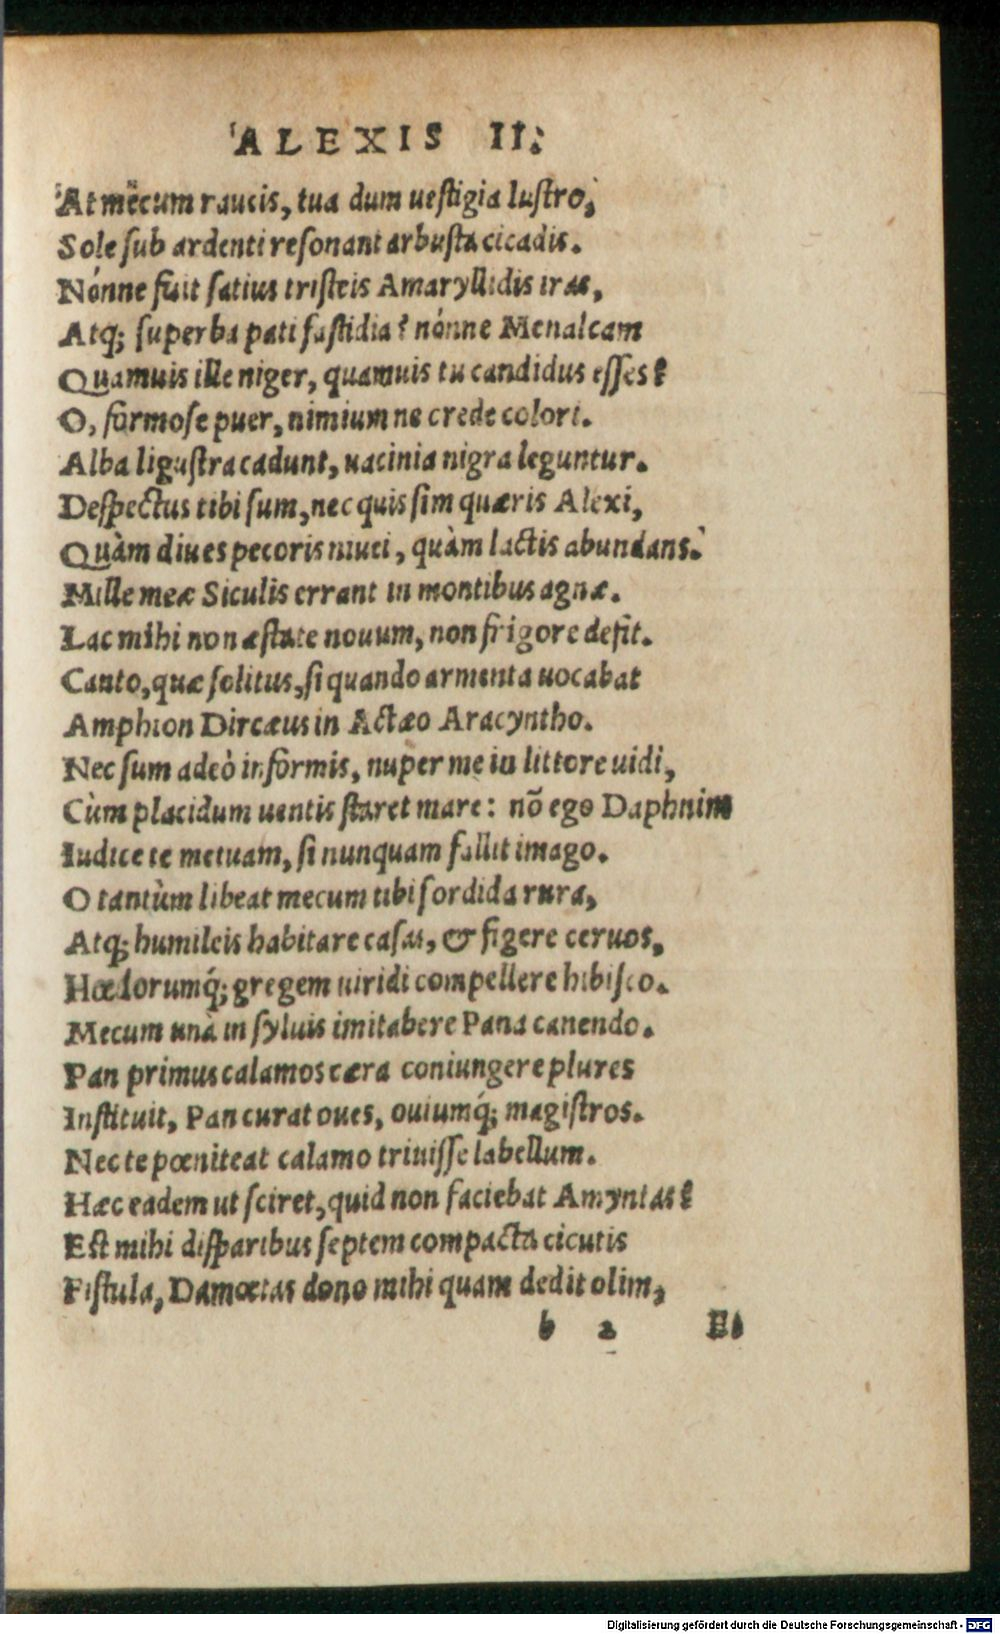 ALEXIS II.
At mecum raucis, tua dum uestigia lustro,
Sole sub ardenti resonant arbusta cicadis.
Nónne fuit satius tristeis Amaryllidis iras,
Atq; superba pati fastidia? nónne Menalcam
Quamuis ille niger, quamuis tu candidus esses?
O, formose puer, nimium ne crede colori.
Alba ligustra cadunt, uacinia nigra leguntur.
Despectus tibi sum, nec quis sim quæris Alexi,
Quàm diues pecoris niuei, quàm lactis abundans.
Mille meæ Siculis errant in montibus agnæ.
Lac mihi non æstate nouum, non frigore defit.
Canto, quæ solitus, si quando armenta uocabat
Amphion Dircæus in Actæo Aracyntho.
Nec sum adeò informis, nuper me in littore uidi,
Cùm placidum uentis staret mare: nõ ego Daphnim
Iudice te metuam, si nunquam fallit imago.
O tantùm libeat mecum tibi sordida rura,
Atq; humileis habitare casas, & figere ceruos,
Hœdorumq́; gregem uiridi compellere hibisco.
Mecum unà in syluis imitabere Pana canendo.
Pan primus calamos cæra coniungere plures
Instituit, Pan curat oues, ouiumq́; magistros.
Nec te pœniteat calamo triuisse labellum.
Hæc eadem ut sciret, quid non faciebat Amyntas?
Est mihi disparibus septem compacta cicutis
Fistula, Damœtas dono mihi quam dedit olim,
b 2 Et
Digitalisierung gefördert durch die Deutsche Forschungsgemeinschaft - DFG